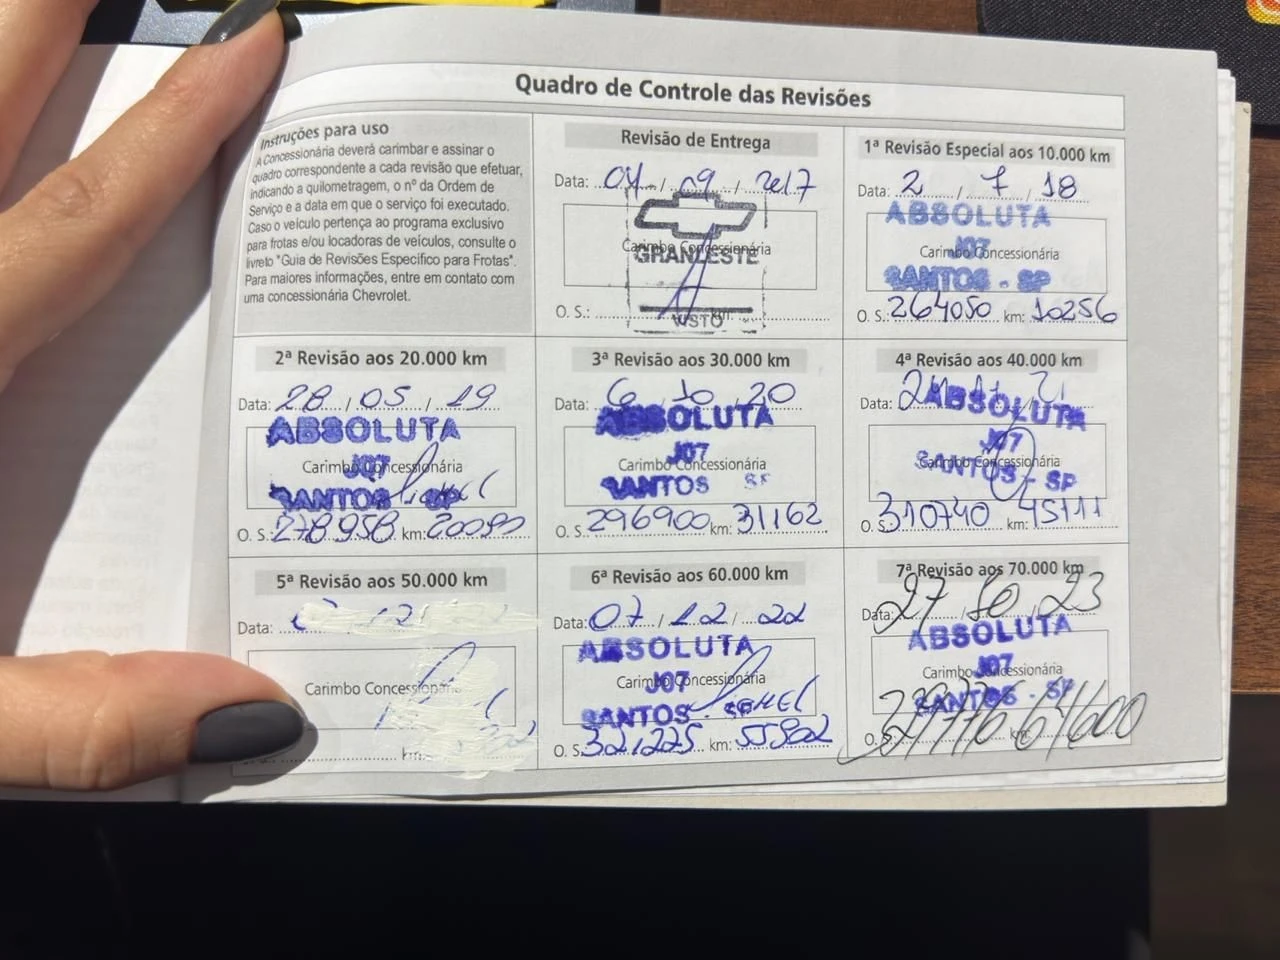 Quadro de Controle das Revisões
Instruções para uso
A Concessionária deverá carimbar e assinar o
quadro correspondente a cada revisão que efetuar,
indicando a quilometragem, o nº da Ordem de
Serviço e a data em que o serviço foi executado.
Caso o veículo pertença ao programa exclusivo
para frotas e/ou locadoras de veículos, consulte o
livreto "Guia de Revisões Específico para Frotas".
Para maiores informações, entre em contato com
uma concessionária Chevrolet.
Revisão de Entrega
Data: 04 / 09 / 2017
Carimbo Concessionária
GRANLESTE
O. S.: km:
VISTO
1ª Revisão Especial aos 10.000 km
Data: 2 / 7 / 18
ABSOLUTA
Carimbo Concessionária
J07
SANTOS - SP
O. S.: 264050 km: 10256
2ª Revisão aos 20.000 km
Data: 28 / 05 / 19
ABSOLUTA
Carimbo Concessionária
J07
SANTOS - SP
O. S.: 278958 km: 20090
3ª Revisão aos 30.000 km
Data: 6 / 10 / 20
ABSOLUTA
Carimbo Concessionária
J07
SANTOS SP
O. S.: 296900 km: 31162
4ª Revisão aos 40.000 km
Data: 21
ABSOLUTA
J07
Carimbo Concessionária
SANTOS - SP
O. S.: 310740 km: 45111
5ª Revisão aos 50.000 km
Data:
Carimbo Concessionária
km:
6ª Revisão aos 60.000 km
Data: 07 / 12 / 22
ABSOLUTA
Carimbo Concessionária
J07
SANTOS - SP
O. S.: 321225 km: 55802
7ª Revisão aos 70.000 km
Data: 27 / 10 / 23
ABSOLUTA
Carimbo Concessionária
J07
SANTOS - SP
O. S.: km: 64600